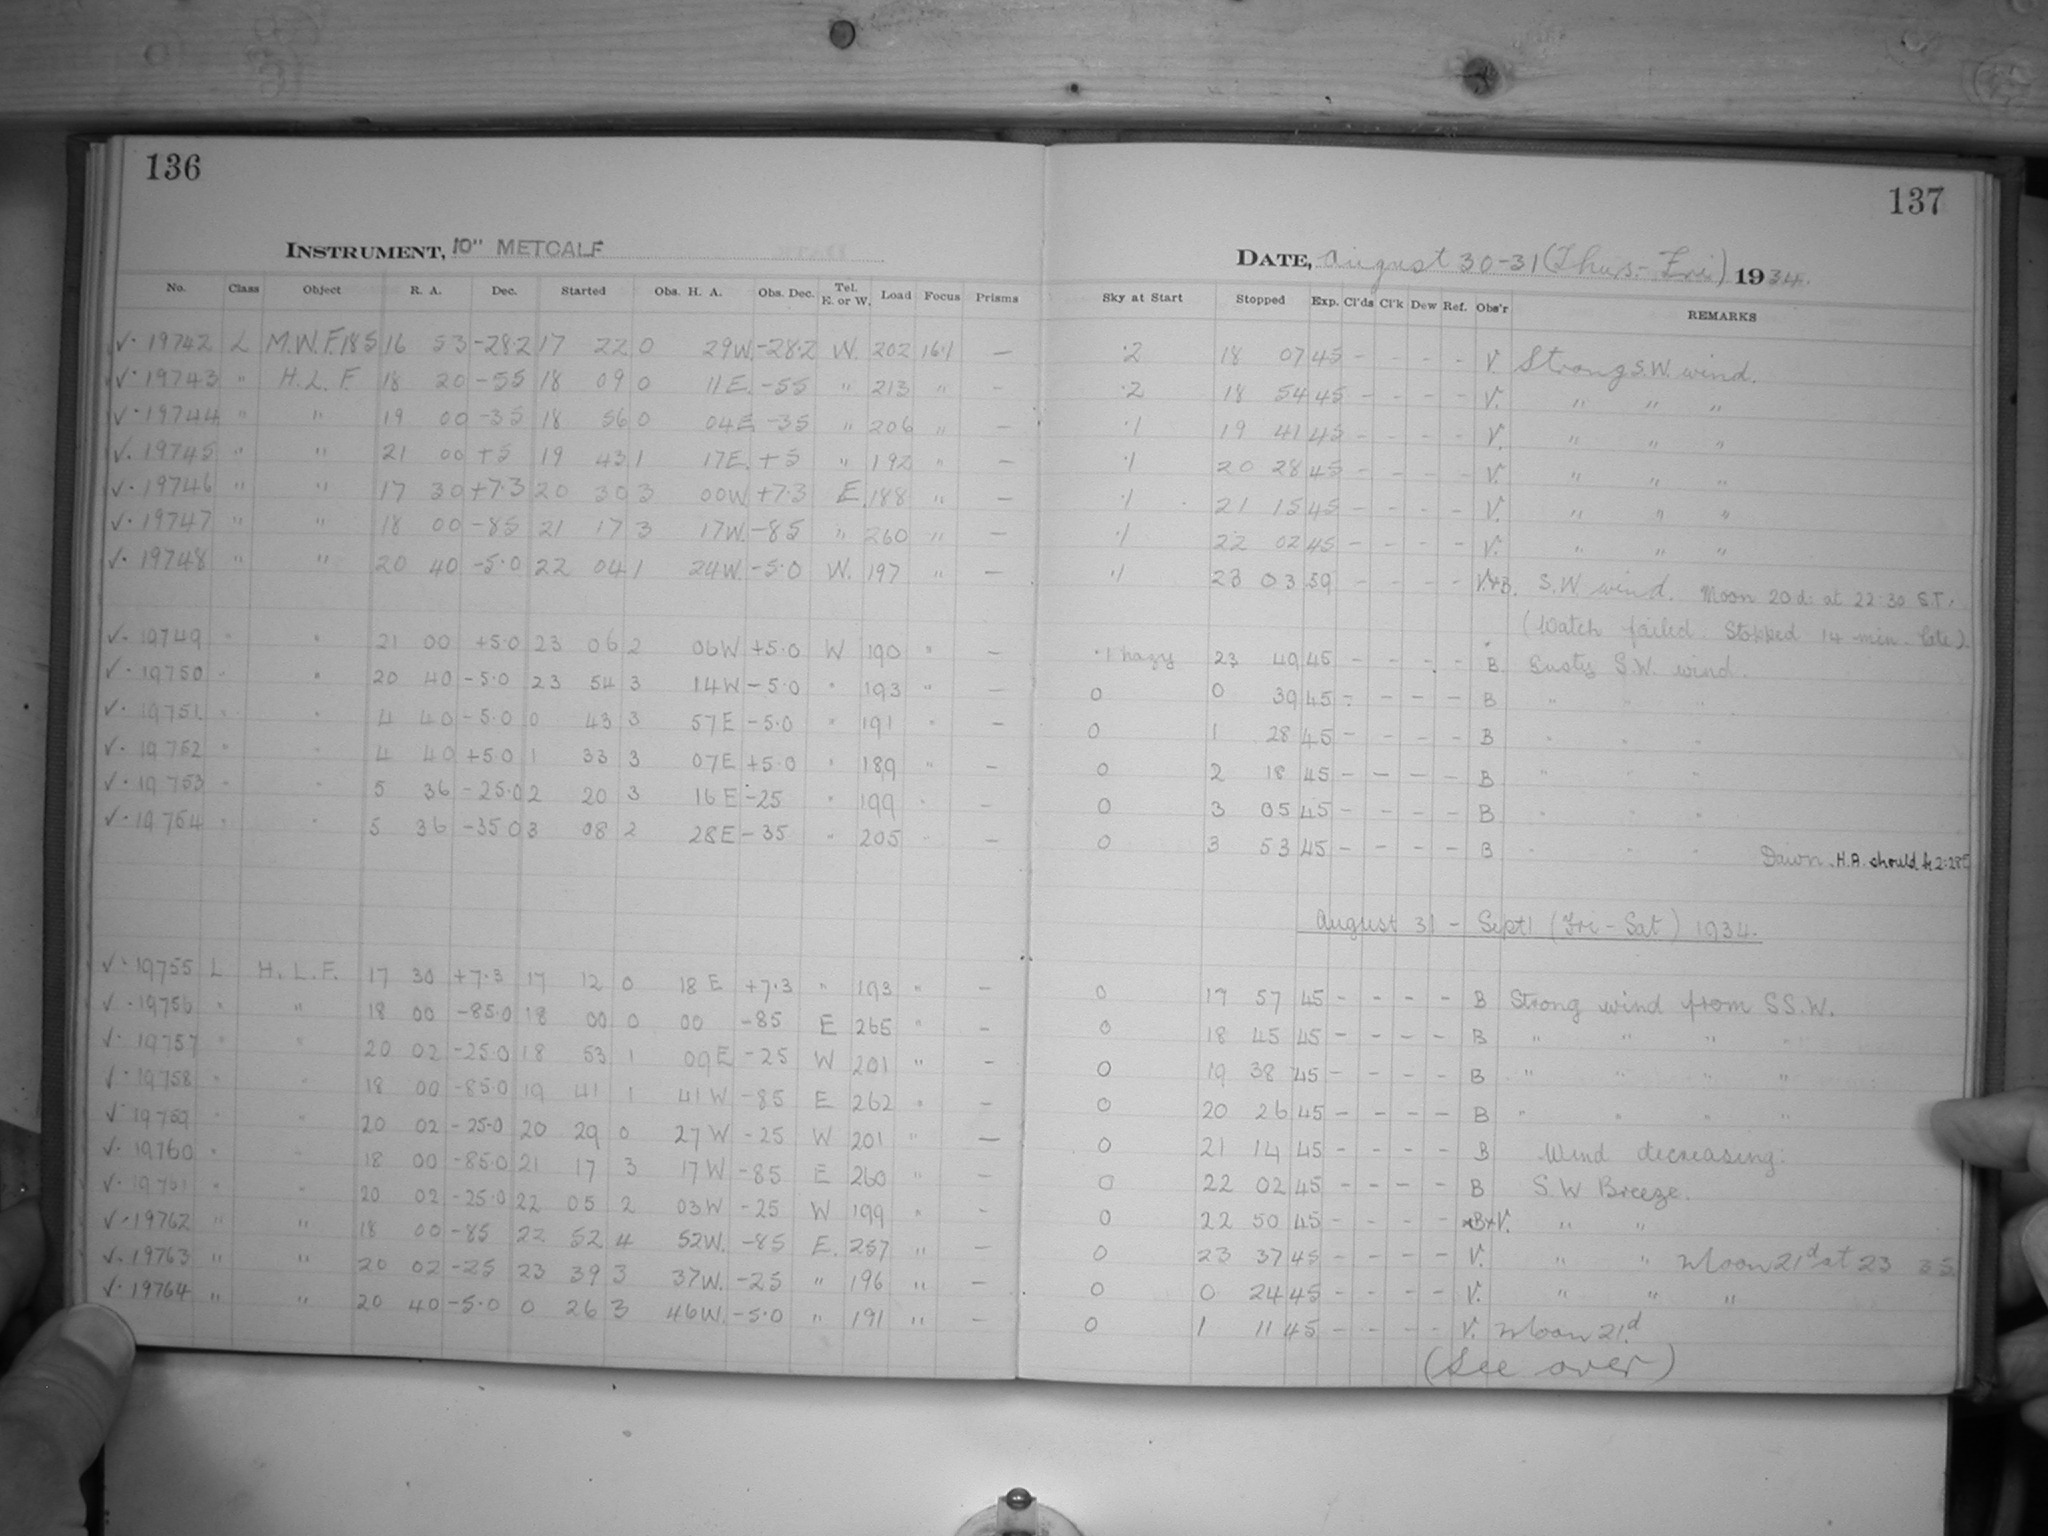 136
INSTRUMENT, 10" METCALF
No. Class Object R. A. Dec. Started Obs. H. A. Obs. Dec. Tel. E. or W. Load Focus Prisms
√· 19742 L M.W.F.185 16 53 -28.2 17 22 0 29W. -28.2 W. 202 16.1 —
√· 19743 " H.L.F. 18 20 -55 18 09 0 11E. -55 " 213 " —
√· 19744 " " 19 00 -35 18 56 0 04E -35 " 206 " —
√. 19745 " " 21 00 +5 19 43 1 17E. +5 " 192 " —
√· 19746 " " 17 30 +7.3 20 30 3 00W +7.3 E. 188 " —
√· 19747 " " 18 00 -85 21 17 3 17W. -85 " 260 " —
√· 19748 " " 20 40 -5.0 22 04 1 24W -5.0 W. 197 " —
√· 19749 " " 21 00 +5.0 23 06 2 06W +5.0 W 190 " —
√· 19750 " " 20 40 -5.0 23 54 3 14W -5.0 " 193 " —
√· 19751 " " 4 40 -5.0 0 43 3 57E -5.0 " 191 " —
√· 19752 " " 4 40 +5.0 1 33 3 07E +5.0 " 189 " —
√· 19753 " " 5 36 -25.0 2 20 3 16E -25 " 199 " —
√· 19754 " " 5 36 -35.0 3 08 2 28E -35 " 205 " —
√· 19755 L H.L.F. 17 30 +7.3 17 12 0 18E +7.3 " 193 " —
√· 19756 " " 18 00 -85.0 18 00 0 00 -85 E 265 " —
√· 19757 " " 20 02 -25.0 18 53 1 09E -25 W 201 " —
√· 19758 " " 18 00 -85.0 19 41 1 41W -85 E 262 " —
√· 19759 " " 20 02 -25.0 20 29 0 27W -25 W 201 " —
√· 19760 " " 18 00 -85.0 21 17 3 17W -85 E 260 " —
√· 19761 " " 20 02 -25.0 22 05 2 03W -25 W 199 " —
√· 19762 " " 18 00 -85 22 52 4 52W. -85 E. 257 " —
√. 19763 " " 20 02 -25 23 39 3 37W. -25 " 196 " —
√· 19764 " " 20 40 -5.0 0 26 3 46W. -5.0 " 191 " —
137
DATE, August 30-31 (Thurs.-Fri) 1934.
Sky at Start Stopped Exp. Cl'ds Cl'k Dew Ref. Obs'r REMARKS
·2 18 07 45 - - - - V. Strong S.W. wind.
·2 18 54 45 - - - - V. " " "
·1 19 41 45 - - - - V. " " "
·1 20 28 45 - - - - V. " " "
·1 21 15 45 - - - - V. " " "
·1 22 02 45 - - - - V. " " "
·1 23 03 59 - - - - V.+B. S.W wind. Moon 20d. at 22:30 S.T.
(Watch failed. Stopped 14 min. late).
·1 hazy 23 49 45 - - - - B. Gusty S.W. wind.
0 0 39 45 - - - - B " " "
0 1 28 45 - - - - B " " "
0 2 18 45 - - - - B " " "
0 3 05 45 - - - - B " " "
0 3 53 45 - - - - B " " " Dawn. H.A. should be 2:28E
August 31 - Sept 1 (Fri - Sat) 1934.
0 17 57 45 - - - - B Strong wind from SS.W.
0 18 45 45 - - - - B " " " "
0 19 38 45 - - - - B " " " "
0 20 26 45 - - - - B " " " "
0 21 14 45 - - - - B Wind decreasing.
0 22 02 45 - - - - B S.W Breeze.
0 22 50 45 - - - - B+V. " "
0 23 37 45 - - - - V. " " Moon 21d at 23 35
0 0 24 45 - - - - V. " " "
0 1 11 45 - - - - V. Moon 21.d
(See over)